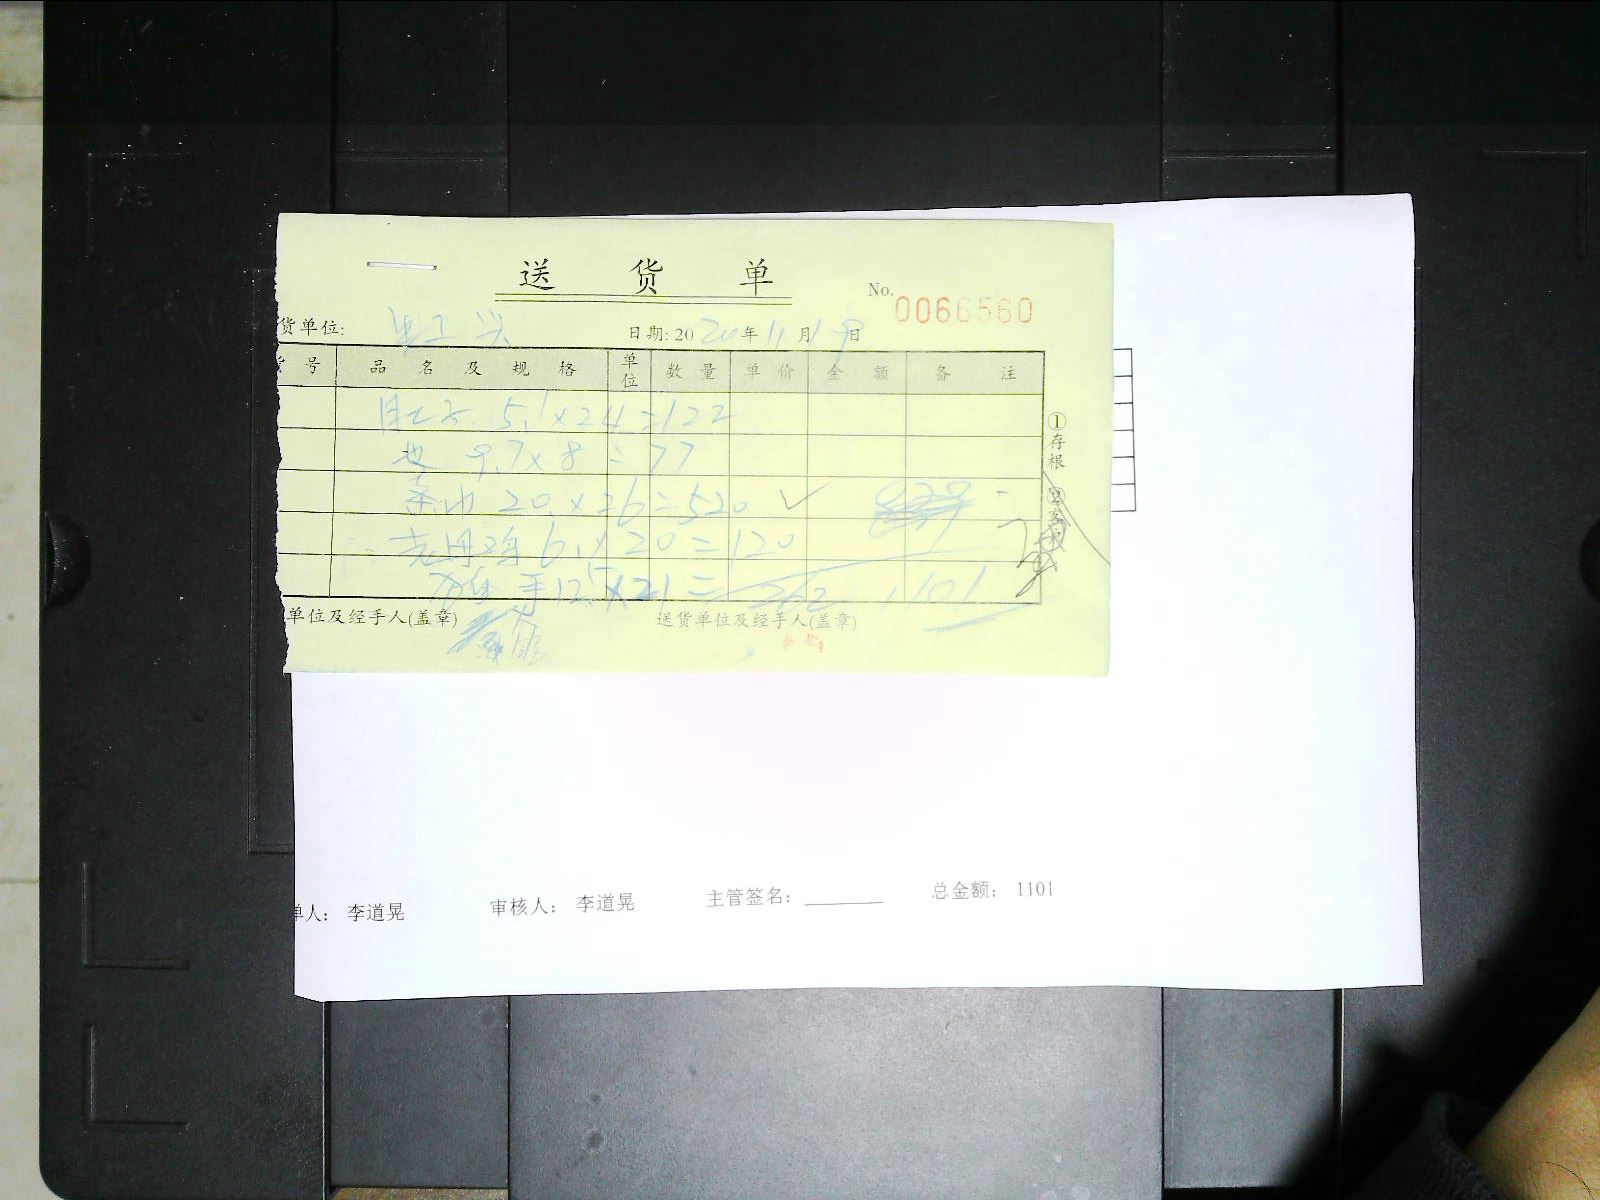 送货单
No. 0066560
货单位:
日期: 2020年11月19日
号 品名及规格 单位 数量 单价 金额 备注
5.1×24=122
9.7×8=77
20.×26=520 ✓
老母鸡 6.×20=120
手12.5×21=262 1101
单位及经手人(盖章) 送货单位及经手人(盖章)
①存根 ②客
单人: 李道晃 审核人: 李道晃 主管签名: 总金额: 1101
A3